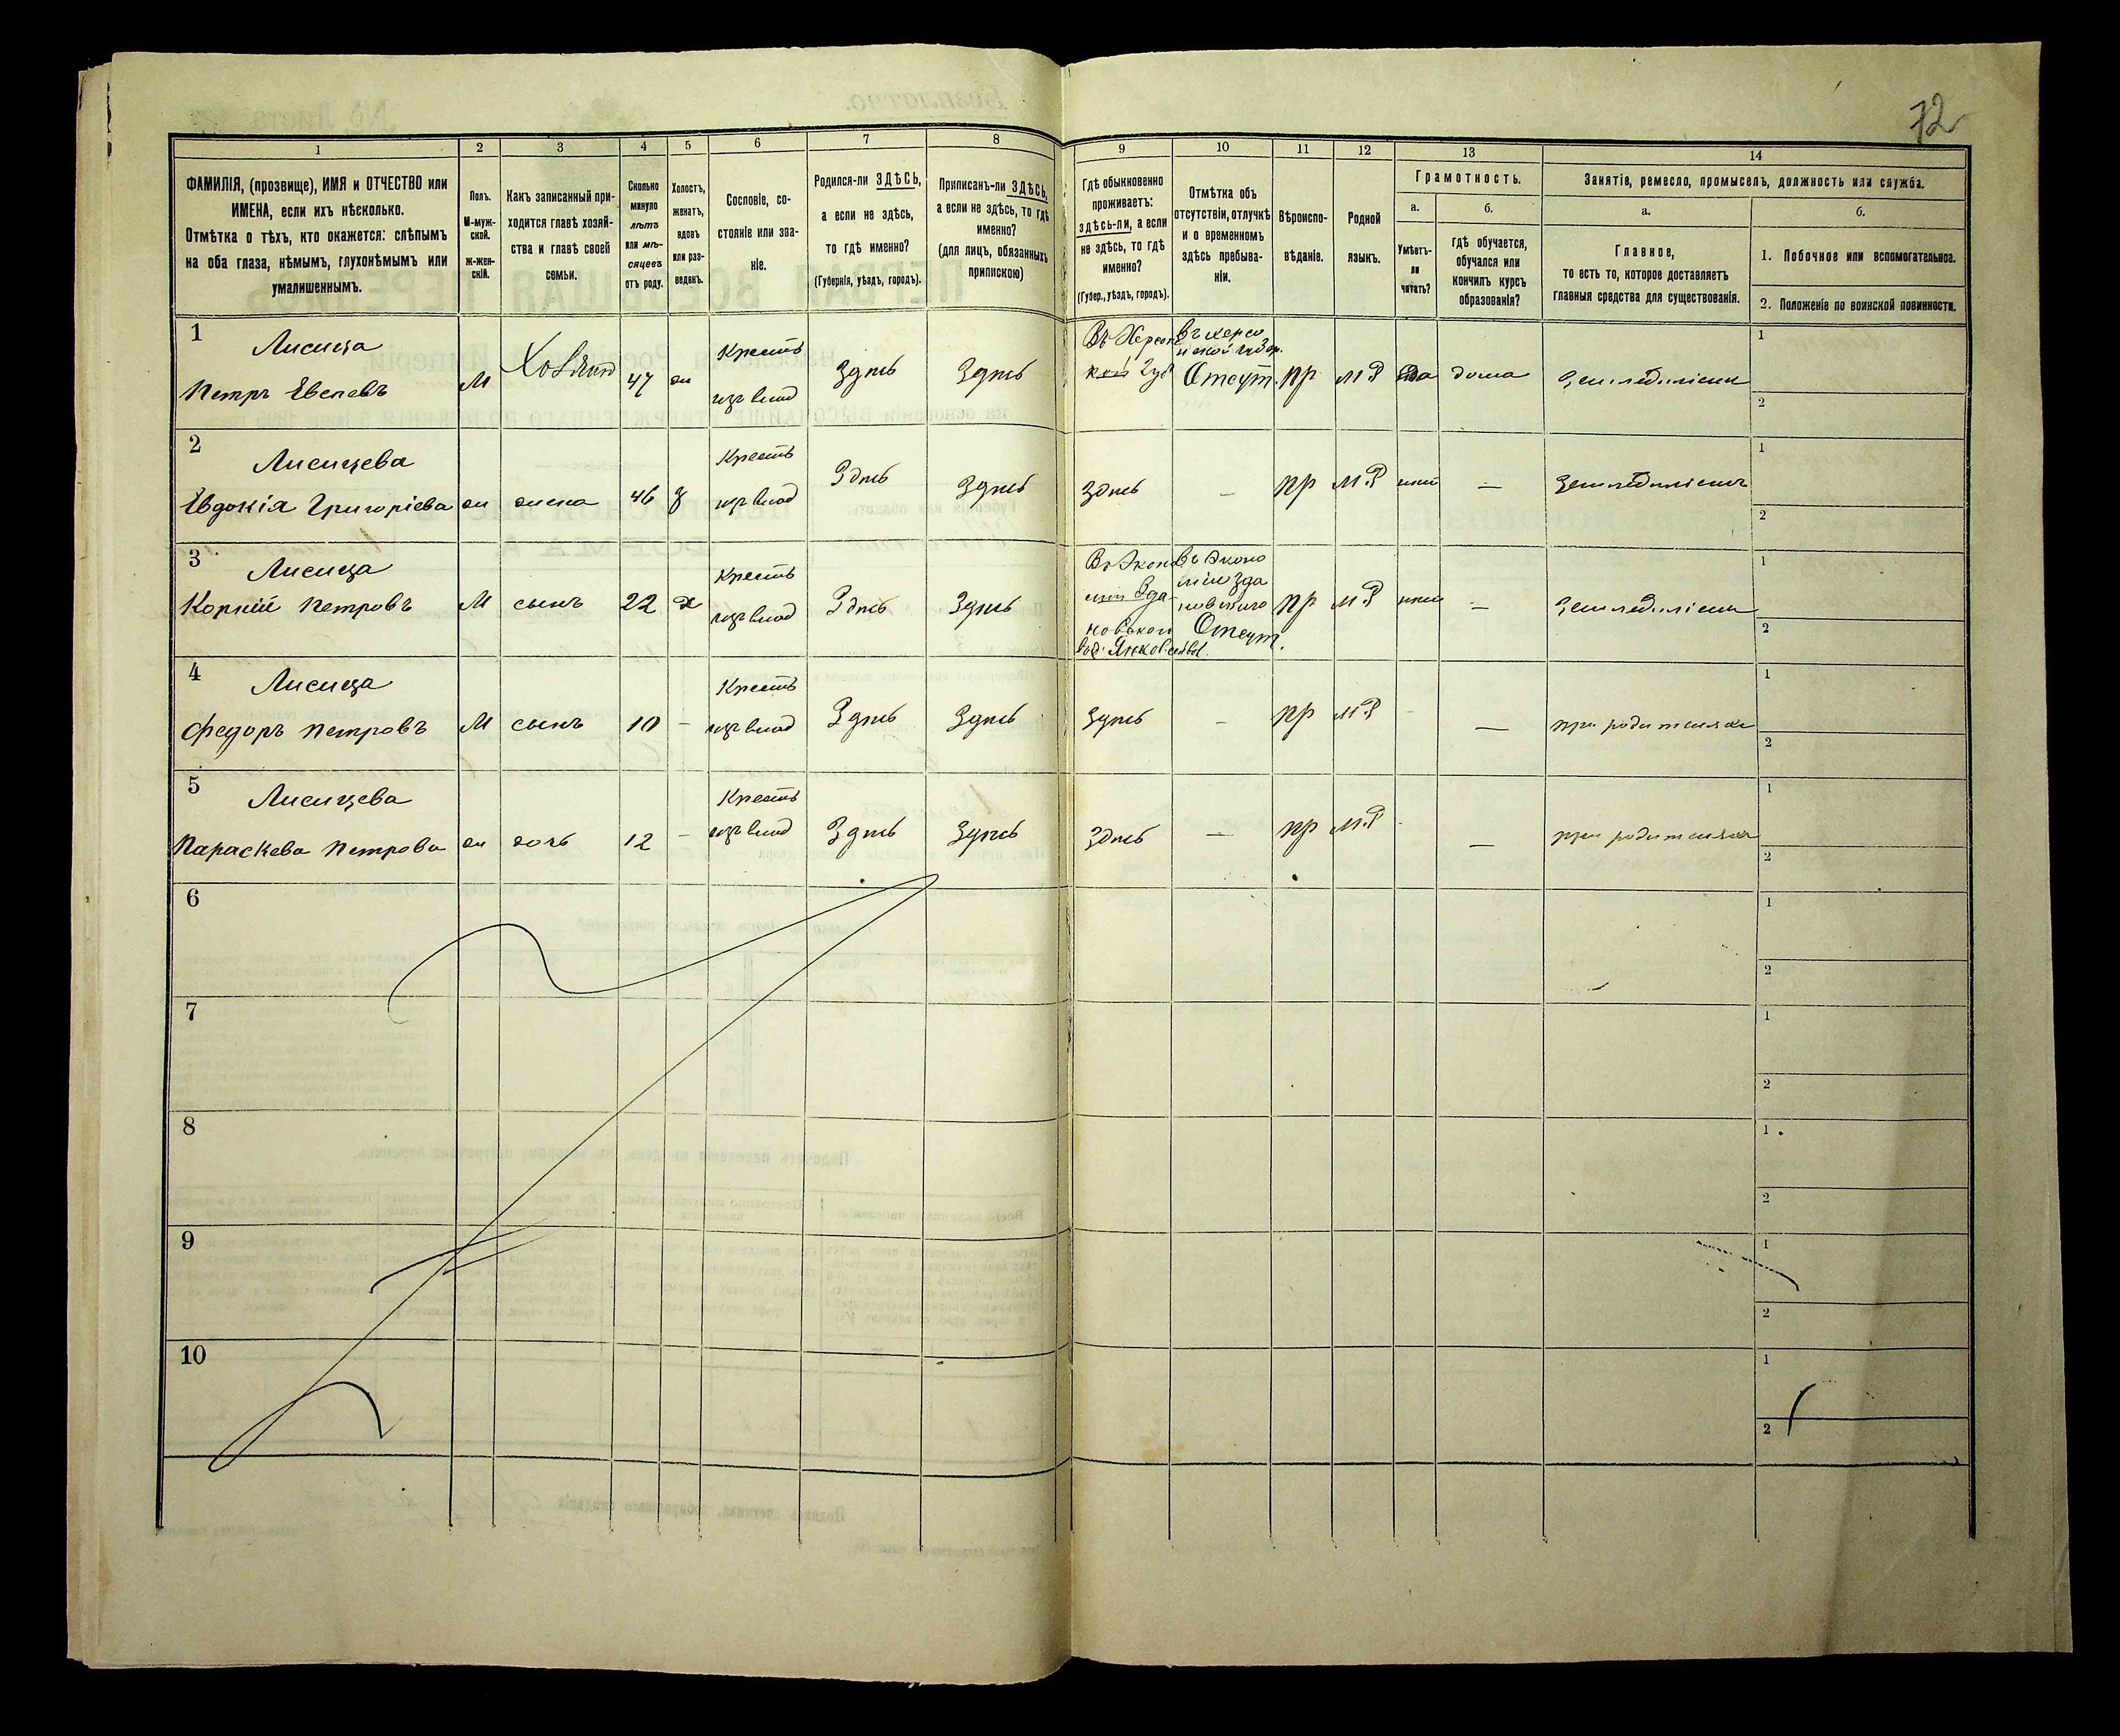 72
1 2 3 4 5 6 7 8 9 10 11 12 13 14
ФАМИЛІЯ, (прозвище), ИМЯ и ОТЧЕСТВО или
ИМЕНА, если ихъ нѣсколько.
Отмѣтка о тѣхъ, кто окажется: слѣпымъ
на оба глаза, нѣмымъ, глухонѣмымъ или
умалишеннымъ.
Полъ.
М-муж-
ской.
Ж-жен-
скій.
Какъ записанный при-
ходится главѣ хозяй-
ства и главѣ своей
семьи.
Сколько
минуло
лѣтъ
или мѣ-
сяцевъ
отъ роду.
Холостъ,
женатъ,
вдовъ
или раз-
веденъ.
Сословіе, со-
стояніе или зва-
ніе.
Родился-ли ЗДѢСЬ,
а если не здѣсь,
то гдѣ именно?
(Губернія, уѣздъ, городъ).
Приписанъ-ли ЗДѢСЬ,
а если не здѣсь, то гдѣ
именно?
(для лицъ, обязанныхъ
припискою)
Гдѣ обыкновенно
проживаетъ:
здѣсь-ли, а если
не здѣсь, то гдѣ
именно?
(Губер., уѣздъ, городъ).
Отмѣтка объ
отсутствіи, отлучкѣ
и о временномъ
здѣсь пребыва-
ніи.
Вѣроиспо-
вѣданіе.
Родной
языкъ.
Грамотность.
а.
Умѣетъ-
ли
читать?
б.
гдѣ обучается,
обучался или
кончилъ курсъ
образованія?
Занятіе, ремесло, промыселъ, должность или служба.
а.
Главное,
то есть то, которое доставляетъ
главныя средства для существованія.
б.
1. Побочное или вспомогательное.
2. Положеніе по воинской повинности.
1
Лисица
Петръ М 47 ж Крестъ изъ влад Здѣсь Здѣсь Отсут. пр МР да дома земледѣліемъ
1
2
2
Лисицева
Евдокія Григоріева ж жена 46 з Крестъ изъ влад Здѣсь Здѣсь Здѣсь — пр МР — земледѣліемъ
1
2
3
Лисица
Корній Петровъ М сынъ 22 х Крестъ изъ влад Здѣсь Здѣсь Отсут. пр МР — земледѣліемъ
1
2
4
Лисица
Федоръ Петровъ М сынъ 10 - Крестъ изъ влад Здѣсь Здѣсь Здѣсь — пр МР — при родителяхъ
1
2
5
Лисицева
Параскева Петрова ж дочь 12 - Крестъ изъ влад Здѣсь Здѣсь Здѣсь — пр МР — при родителяхъ
1
2
6
1
2
7
1
2
8
1
2
9
1
2
10
1
2